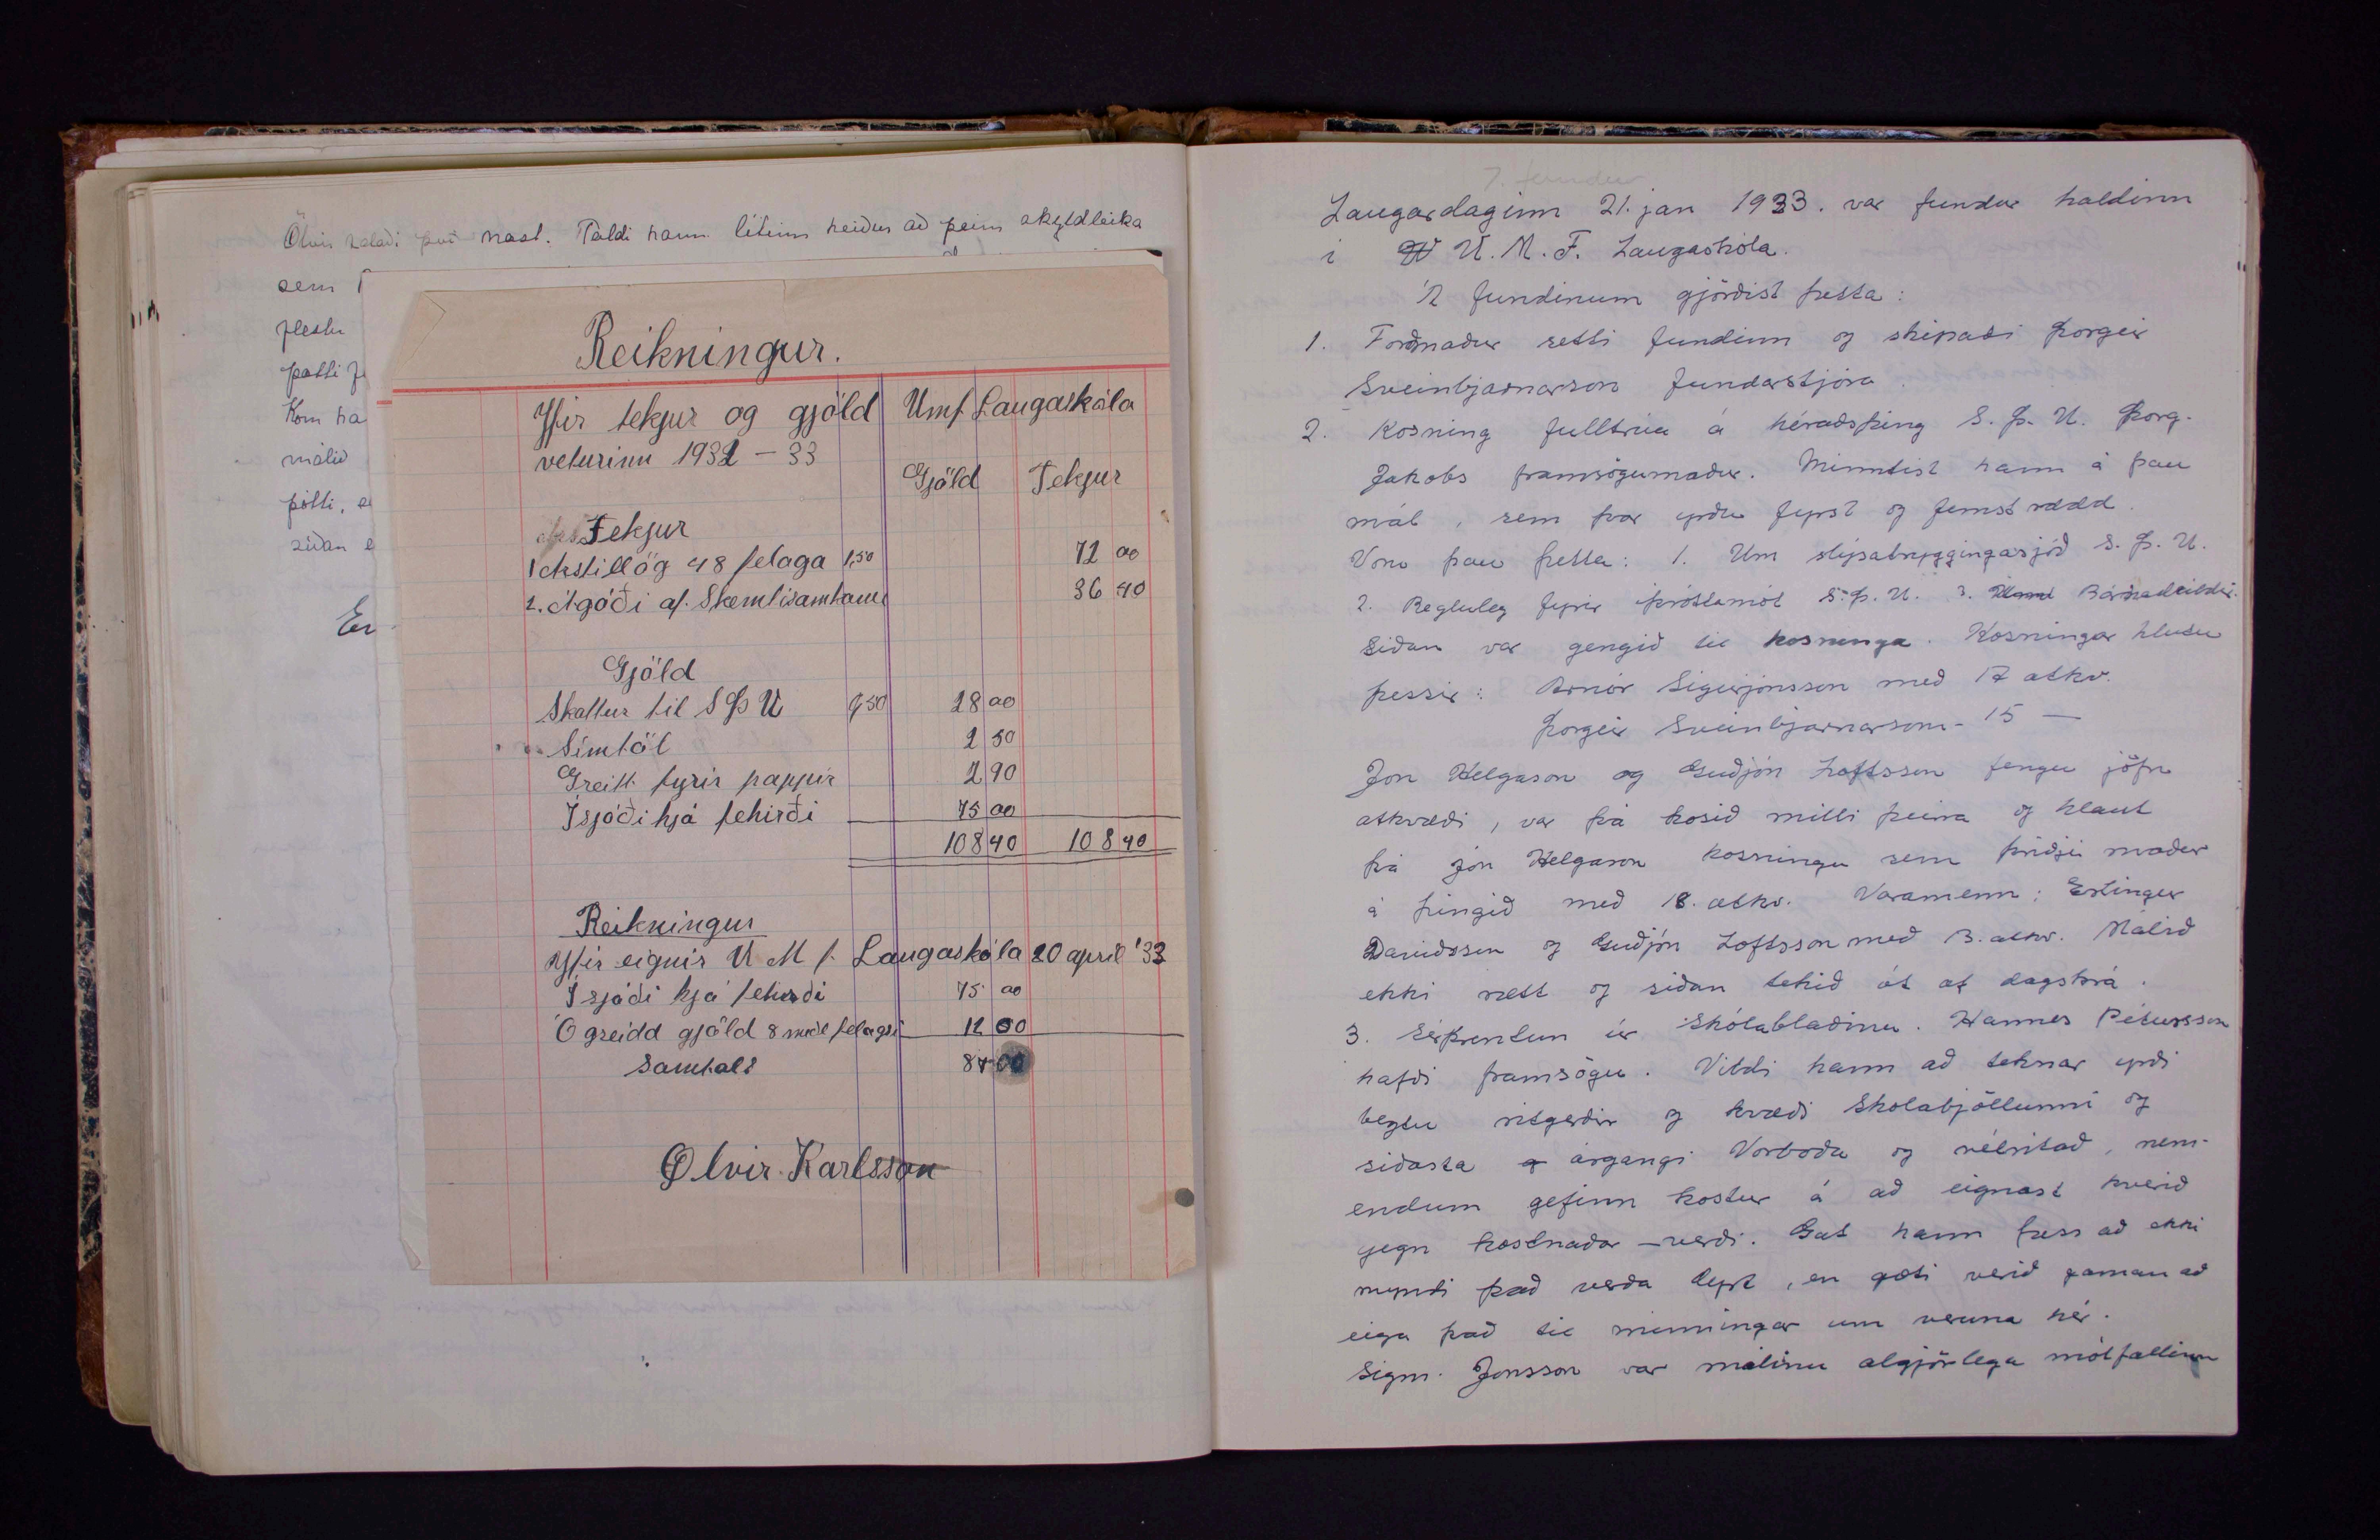 Ölvir talaði því næst. Taldi hann lítinn heiður að þeim skyldleika
sem
flestu
þætti
Kom ha
málið
þótti, e
síðan e
En
Reikningur.
Yfir tekjur og gjöld Umf Laugaskóla
veturinn 1932 – 33
Gjöld Tekjur
Tekjur
1 Árstillög 48 félaga 1,50 72 00
2. Ágóði af. Skemtisamkomu 36 40
Gjöld
Skattur til S Þ U 0,50 28 00
Símtöl 2 50
Greitt fyrir pappír 2 90
Í sjóði hjá féhirði 75 00
108 40 108 40
Reikningur
Yfir eignir U M f. Laugaskóla 20 apríl '33
Í sjóði hjá féhirði 75 00
Ógreidd gjöld 8 með félagsi 12 00
Samtals 87 00
Ölvir Karlsson
7. fundur
Laugardaginn 21. jan 1933. var fundur haldinn
í U. M. F. Laugaskóla.
Á fundinum gjörðist þetta:
1. Formaður setti fundinn og skipaði Þorgeir
Sveinbjarnarson fundarstjóra.
2. Kosning fulltrúa á héraðsþing S. Þ. U. Þorg.
Jakobs framsögumaður. Minntist hann á þau
mál, sem þar yrðu fyrst og fremst rædd.
Voru þau þetta: 1. Um slysatryggingasjóð S. Þ. U.
2. Regluleg fyrir íþróttamót S. Þ. U. 3. Barnadeildir.
Síðan var gengið til kosninga. Kosningar hlutu
þessir: Arnór Sigurjónsson með 17 atkv.
Þorgeir Sveinbjarnarson - 15 —
Jón Helgason og Guðjón Loftsson fengu jöfn
atkvæði, var þá kosið milli þeirra og hlaut
þá Jón Helgason kosningu sem þriðji maður
á þingið með 18. atkv. Varamenn: Erlingur
Davíðsson og Guðjón Loftsson með 13. atkv. Málið
ekki rætt og síðan tekið út af dagskrá.
3. Sérprentun úr Skólablaðinu. Hannes Pétursson
hafði framsögu. Vildi hann að teknar yrði
beztu ritgerðir og kvæði Skolabjöllunni og
síðasta árgangi Vorboða og vélritað, nem-
endum gefinn kostur á að eignast kverið
gegn kostnaðar – verði. Gat hann þess að ekki
myndi það verða dýrt, en gæti verið gaman að
eiga það til minningar um veruna hér.
Sigm. Jónsson var málinu algjörlega mótfallinn